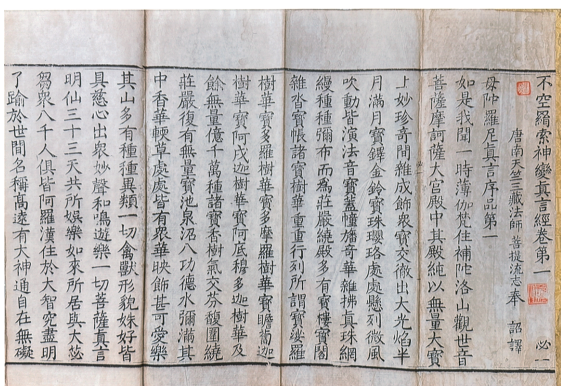 不空羂索神變真言經卷第一 必一
唐南天竺三藏法師菩提流志奉 詔譯
母陀羅尼真言序品第一
如是我聞一時薄伽梵住補陀洛山觀世音
菩薩摩訶薩大宮殿中其殿純以無量大寶
上妙珍奇間雜成飾衆寶交徹出大光焰半
月滿月寶鐸金鈴寶珠瓔珞處處懸列微風
吹動皆演法音寶蓋幢旛奇華雜拂真珠網
縵種種彌布而為莊嚴繞殿多有寶樓寶閣
雜沓寶帳諸寶樹華重重行列所謂寶娑羅
樹華寶多羅樹華寶多摩羅樹華寶瞻蔔迦
樹華寶阿戌迦樹華寶阿底穆多迦樹華及
餘無量億千萬種諸寶香樹氣交芬馥圍繞
莊嚴復有無量寶池泉沼八功德水彌滿其
中香華輭草處處皆有衆華映飾甚可愛樂
其山多有種種異類一切禽獸形貌姝好皆
具慈心出衆妙聲和鳴遊樂一切菩薩真言
明仙三十三天共所娛樂如來所居與大苾
芻衆八千人俱皆阿羅漢住於大智究盡明
了踰於世間名稱高遠有大神通自在無礙